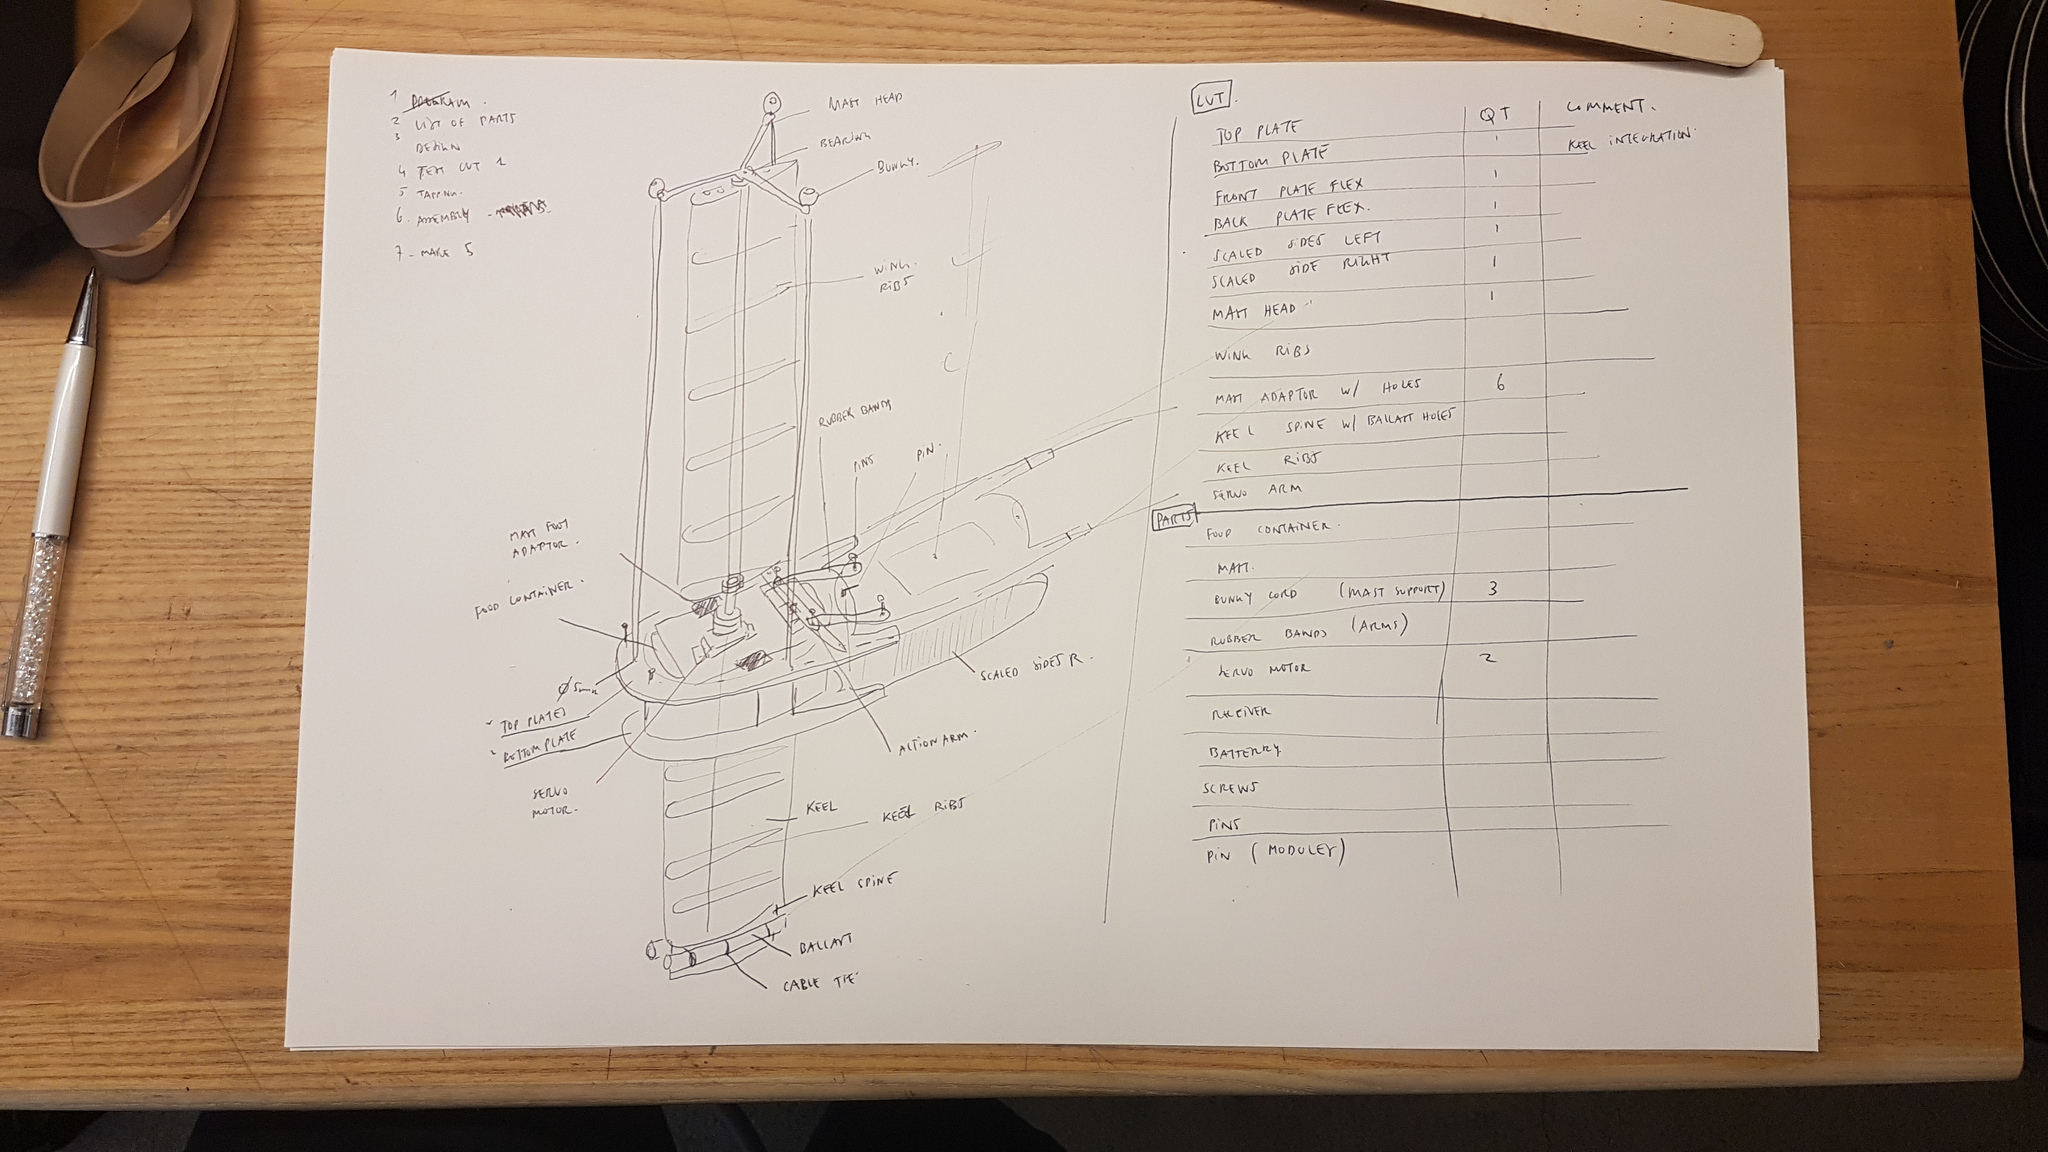 1 PROGRAM.
2 LIST OF PARTS
3 DESIGN
4 TEST CUT 1
5 TAPPING.
6. ASSEMBLY -
7 - MAKE 5
MAST HEAD
BEARING
BUNGY.
WING.
RIBS
RUBBER BANDS
PINS
PIN.
MAST FOOT
ADAPTOR.
FOOD CONTAINER.
Ø 5mm
TOP PLATES
BOTTOM PLATE
SERVO
MOTOR.
SCALED SIDES R.
ACTION ARM.
KEEL
KEEL RIBS
KEEL SPINE
BALLAST
CABLE TIE
CUT.
QT COMMENT.
TOP PLATE 1
BOTTOM PLATE KEEL INTEGRATION.
FRONT PLATE FLEX 1
BACK PLATE FLEX. 1
SCALED SIDES LEFT 1
SCALED SIDE RIGHT 1
MAST HEAD 1
WING RIBS
MAST ADAPTOR W/ HOLES 6
KEEL SPINE W/ BALLAST HOLES
KEEL RIBS
SERVO ARM
PARTS
FOOD CONTAINER.
MAST.
BUNGY CORD (MAST SUPPORT) 3
RUBBER BANDS (ARMS)
SERVO MOTOR 2
RECEIVER
BATTERRY
SCREWS
PINS
PIN (MODULES)